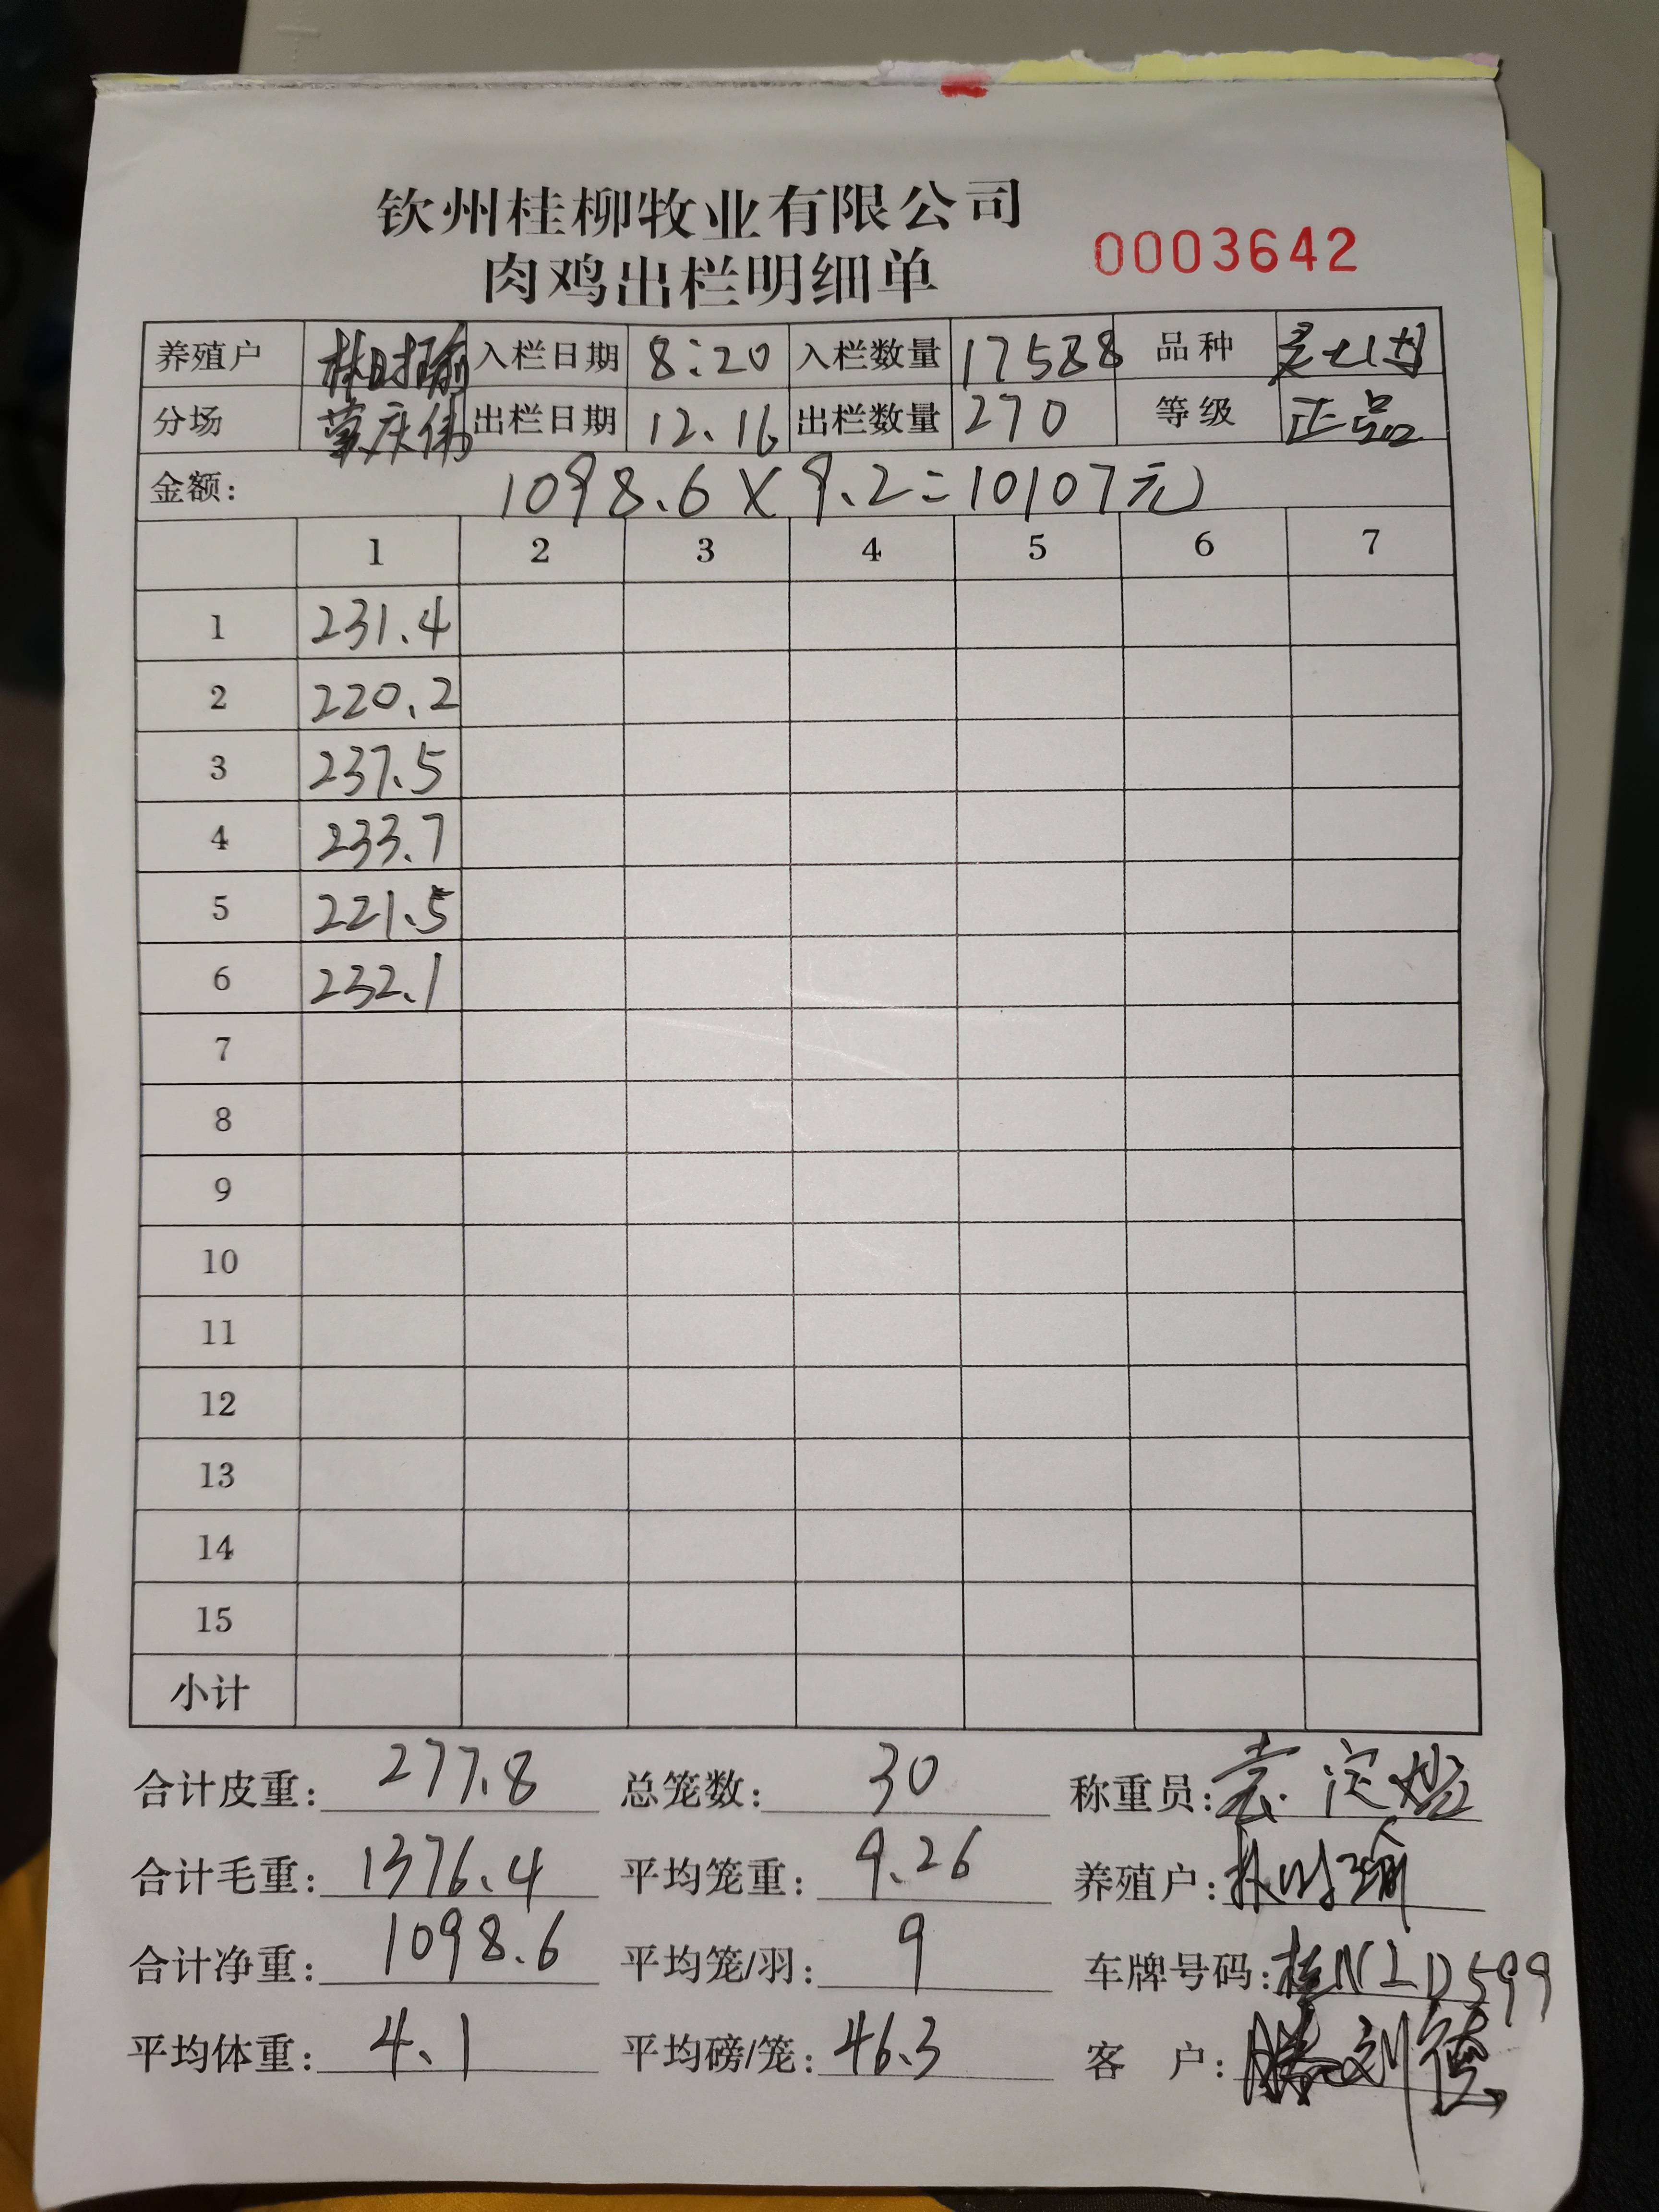 钦州桂柳牧业有限公司
肉鸡出栏明细单
0003642
养殖户 林时瑜 入栏日期 8:20 入栏数量 17588 品种 灵山土
分场 出栏日期 12.16 出栏数量 270 等级 正品
金额: 1098.6 X 9.2=10107元
1 2 3 4 5 6 7
1 231.4
2 220.2
3 237.5
4 233.7
5 221.5
6 232.1
7
8
9
10
11
12
13
14
15
小计
合计皮重: 277.8 总笼数: 30 称重员:
合计毛重: 1376.4 平均笼重: 9.26 养殖户: 林时瑜
合计净重: 1098.6 平均笼/羽: 9 车牌号码: 桂NLD599
平均体重: 4.1 平均磅/笼: 46.3 客 户: